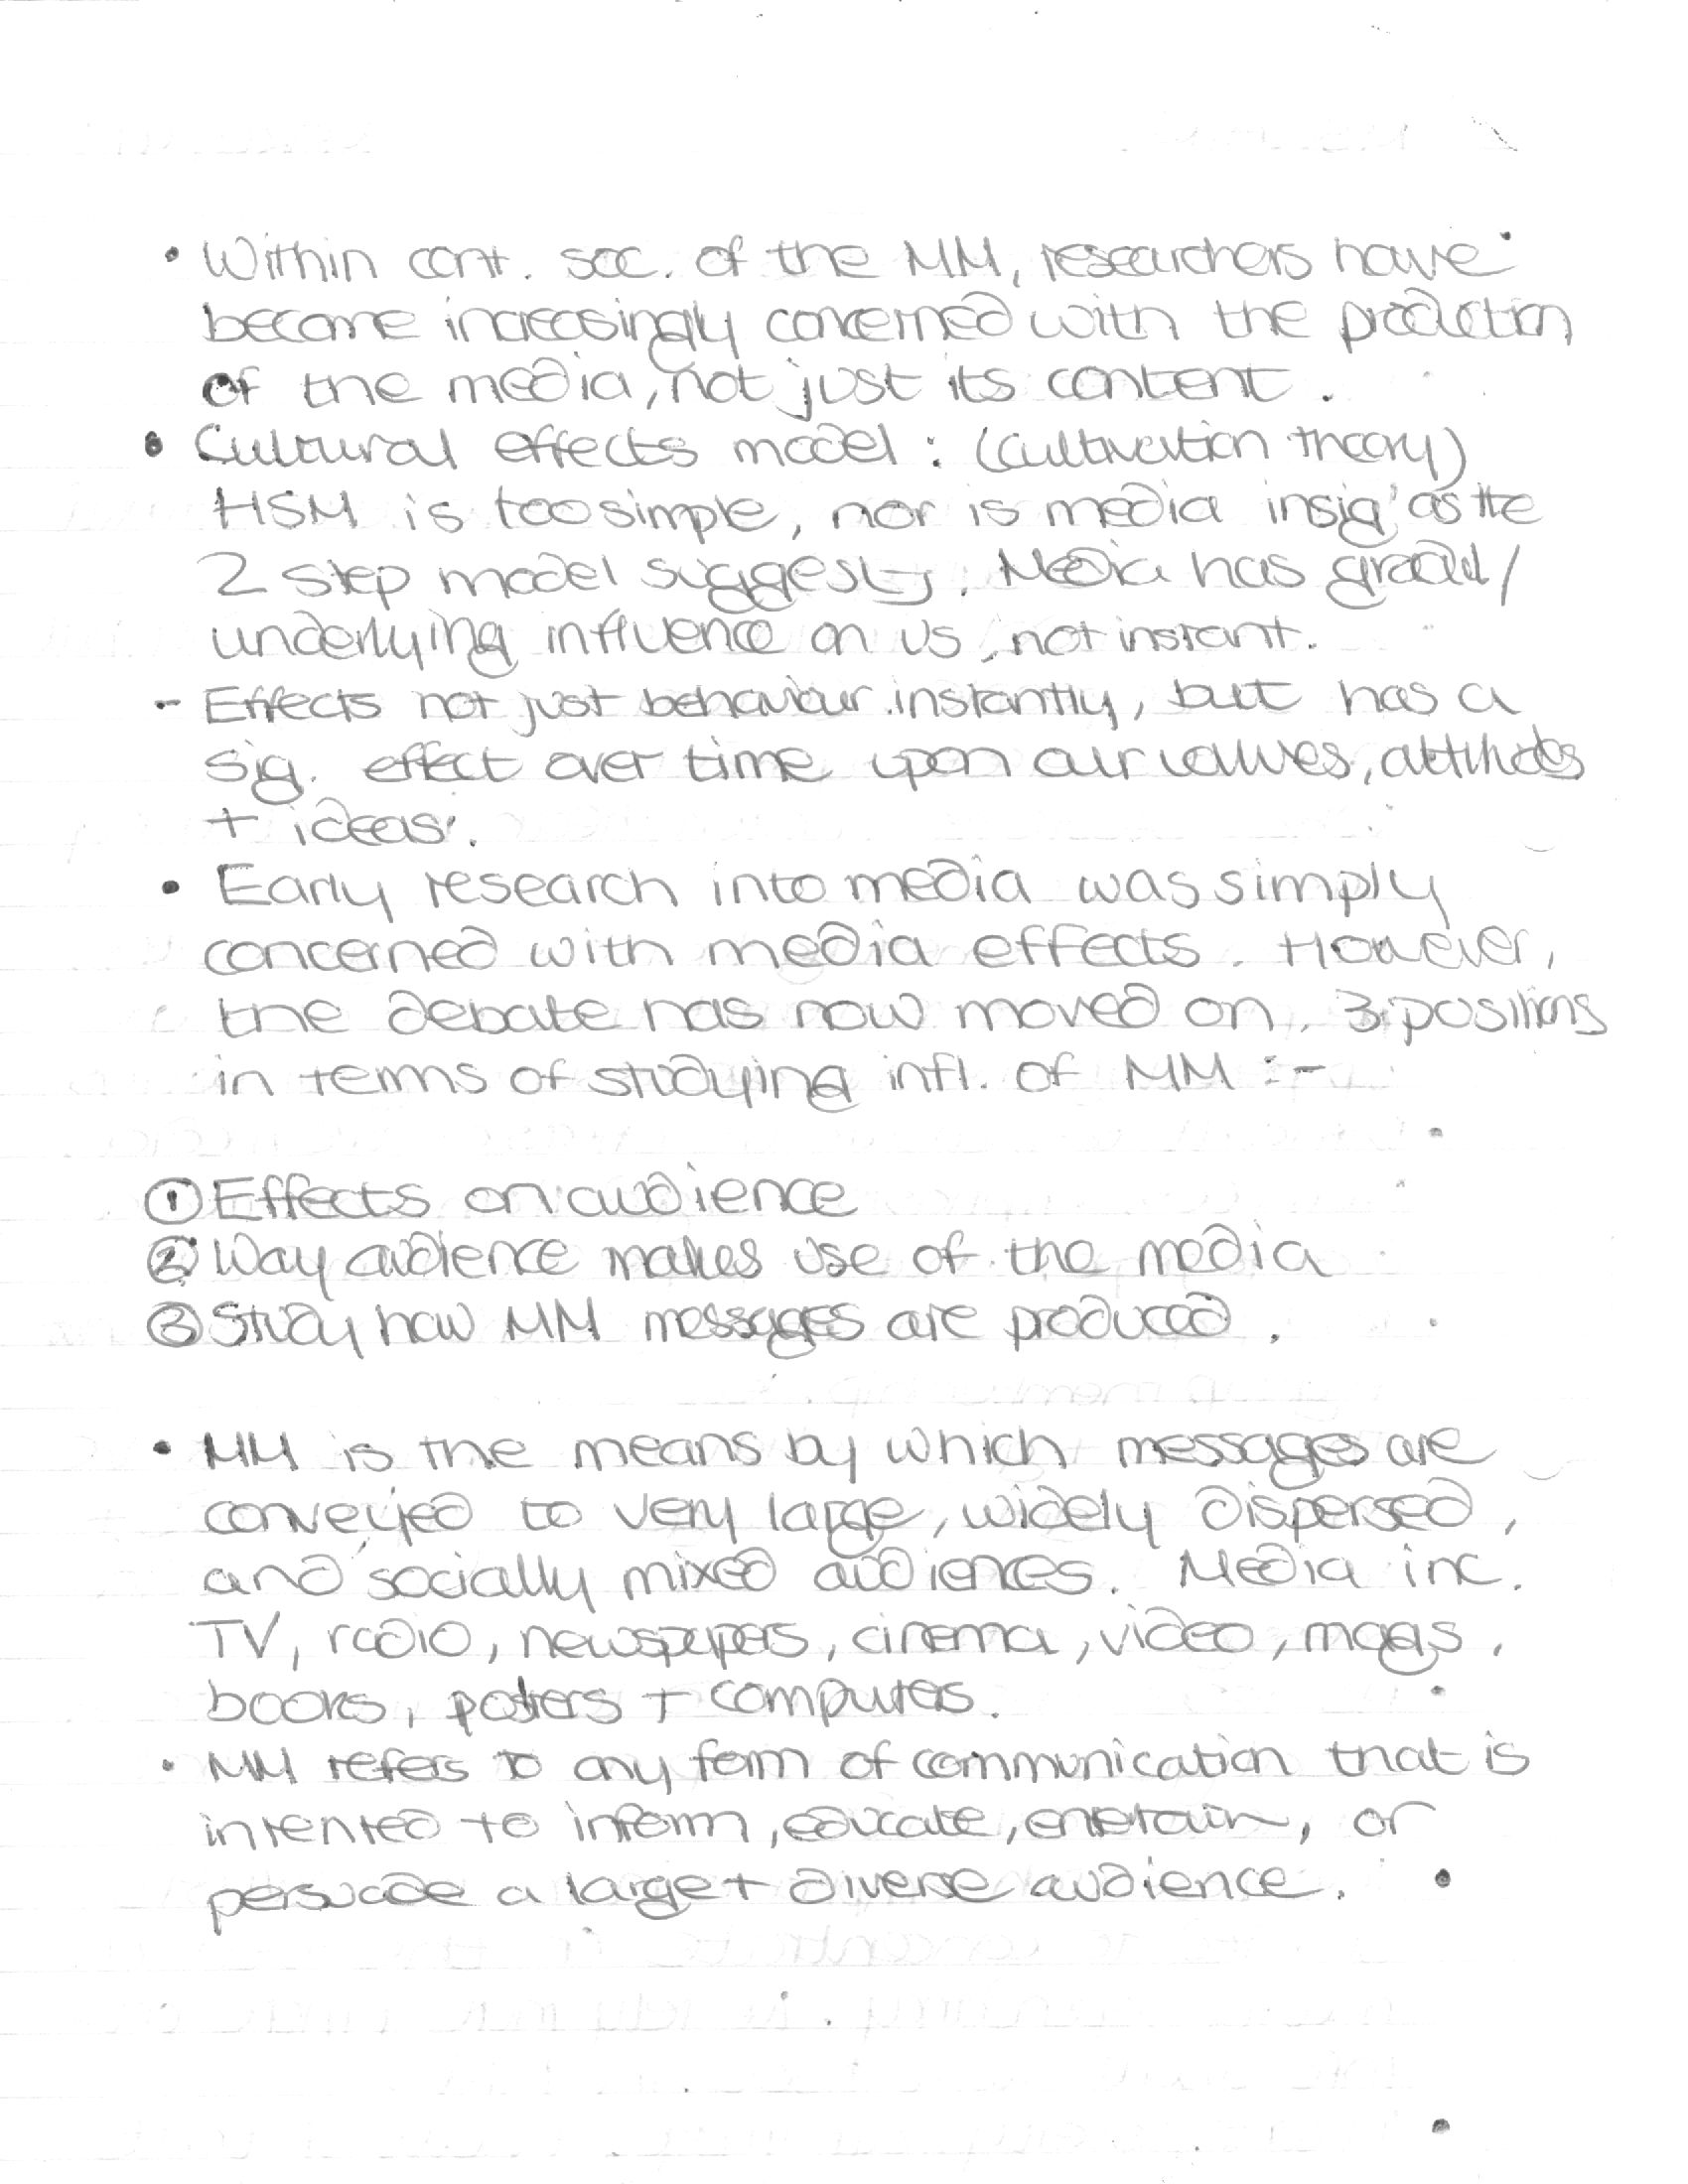 • Within cont. soc. of the MM, researchers have
become increasingly concerned with the production
of the media, not just its content.
• Cultural effects model: (cultivation theory)
HSM is too simple, nor is media insig' as the
2 step model suggests. Media has gradual/
underlying influence on us, not instant.
- Effects not just behaviour instantly, but has a
sig. effect over time upon our values, attitudes
+ ideas.
• Early research into media was simply
concerned with media effects. However,
the debate has now moved on. 3 positions
in terms of studying infl. of MM :-
① Effects on audience
② Way audience makes use of the media
③ Study how MM messages are produced.
• MM is the means by which messages are
conveyed to very large, widely dispersed,
and socially mixed audiences. Media inc.
TV, radio, newspapers, cinema, video, mags,
books, posters + computers.
• MM refers to any form of communication that is
intented to inform, educate, entertain, or
persuade a large + diverse audience.